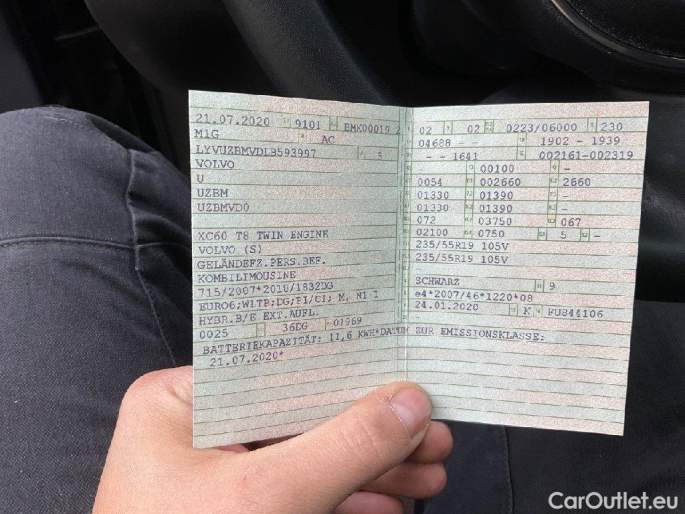 21.07.2020 9101 BMK00019 2
M1G AC
LYVUZBMVDLB593997 5
VOLVO
U
UZBM
UZBMVD0
XC60 T8 TWIN ENGINE
VOLVO (S)
GELÄNDEFZ.PERS.BEF.
KOMBILIMOUSINE
715/2007*2018/1832DG
EURO6;WLTP;DG;PI/CI; M, N1 I
HYBR.B/E EXT.AUFL.
0025 36DG 01969
BATTERIEKAPAZITÄT: 11,6 KWH*DATUM ZUR EMISSIONSKLASSE:
21.07.2020*
02 02 0223/06000 230
04688 - - 1902 - 1939
- - 1641 002161-002319
00100 -
0054 002660 2660
01330 01390 -
01330 01390 -
072 03750 067
02100 0750 5 -
235/55R19 105V
235/55R19 105V
-
SCHWARZ 9
e4*2007/46*1220*08
24.01.2020 K FU844106
-
CarOutlet.eu